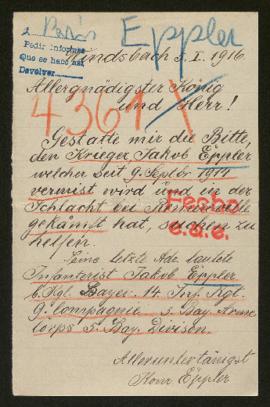 a París Eppler
Pedir informes
Que se hace así
Devolver
Windsbach 3. I. 1916.
Allergnädigster König
und Herr!
43617 X
Gestatte mir die Bitte,
den Krieger Jakob Eppler
welcher seit 9. Septbr. 1914
vermisst wird und in der
Schlacht bei
gekämft hat, suchen zu
helfen.
Fecho
Seine letzte Adr. lautete
Infanterist Jakob Eppler
b. Kgl. Bayer. 14. Inf. Rgt.
9. Compagnie 3. Bay. Arme
Corps 5. Bay. Division.
Alleruntertänigst
Eppler